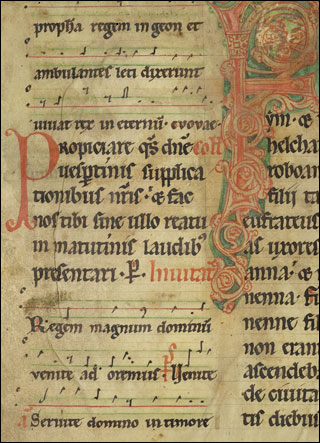 propha regem in geon et
ambulantes leti dixerunt
vivat rex in eternū. evovae
Propiciare qs dne coll
vespertinis supplica
tionibus nris. & fac
nos tibi sine ullo reatu
in matutinis laudib;
presentari. Invitat
Regem magnum dominū
venite ad oremus ps Venite
Servite domino in timore
ym. &
helcha
roboam
filii t
eufrateus
as uxores
anna. &
nenna. fi
nenne fili
non eran
ascendeb
de civita
tis diebus